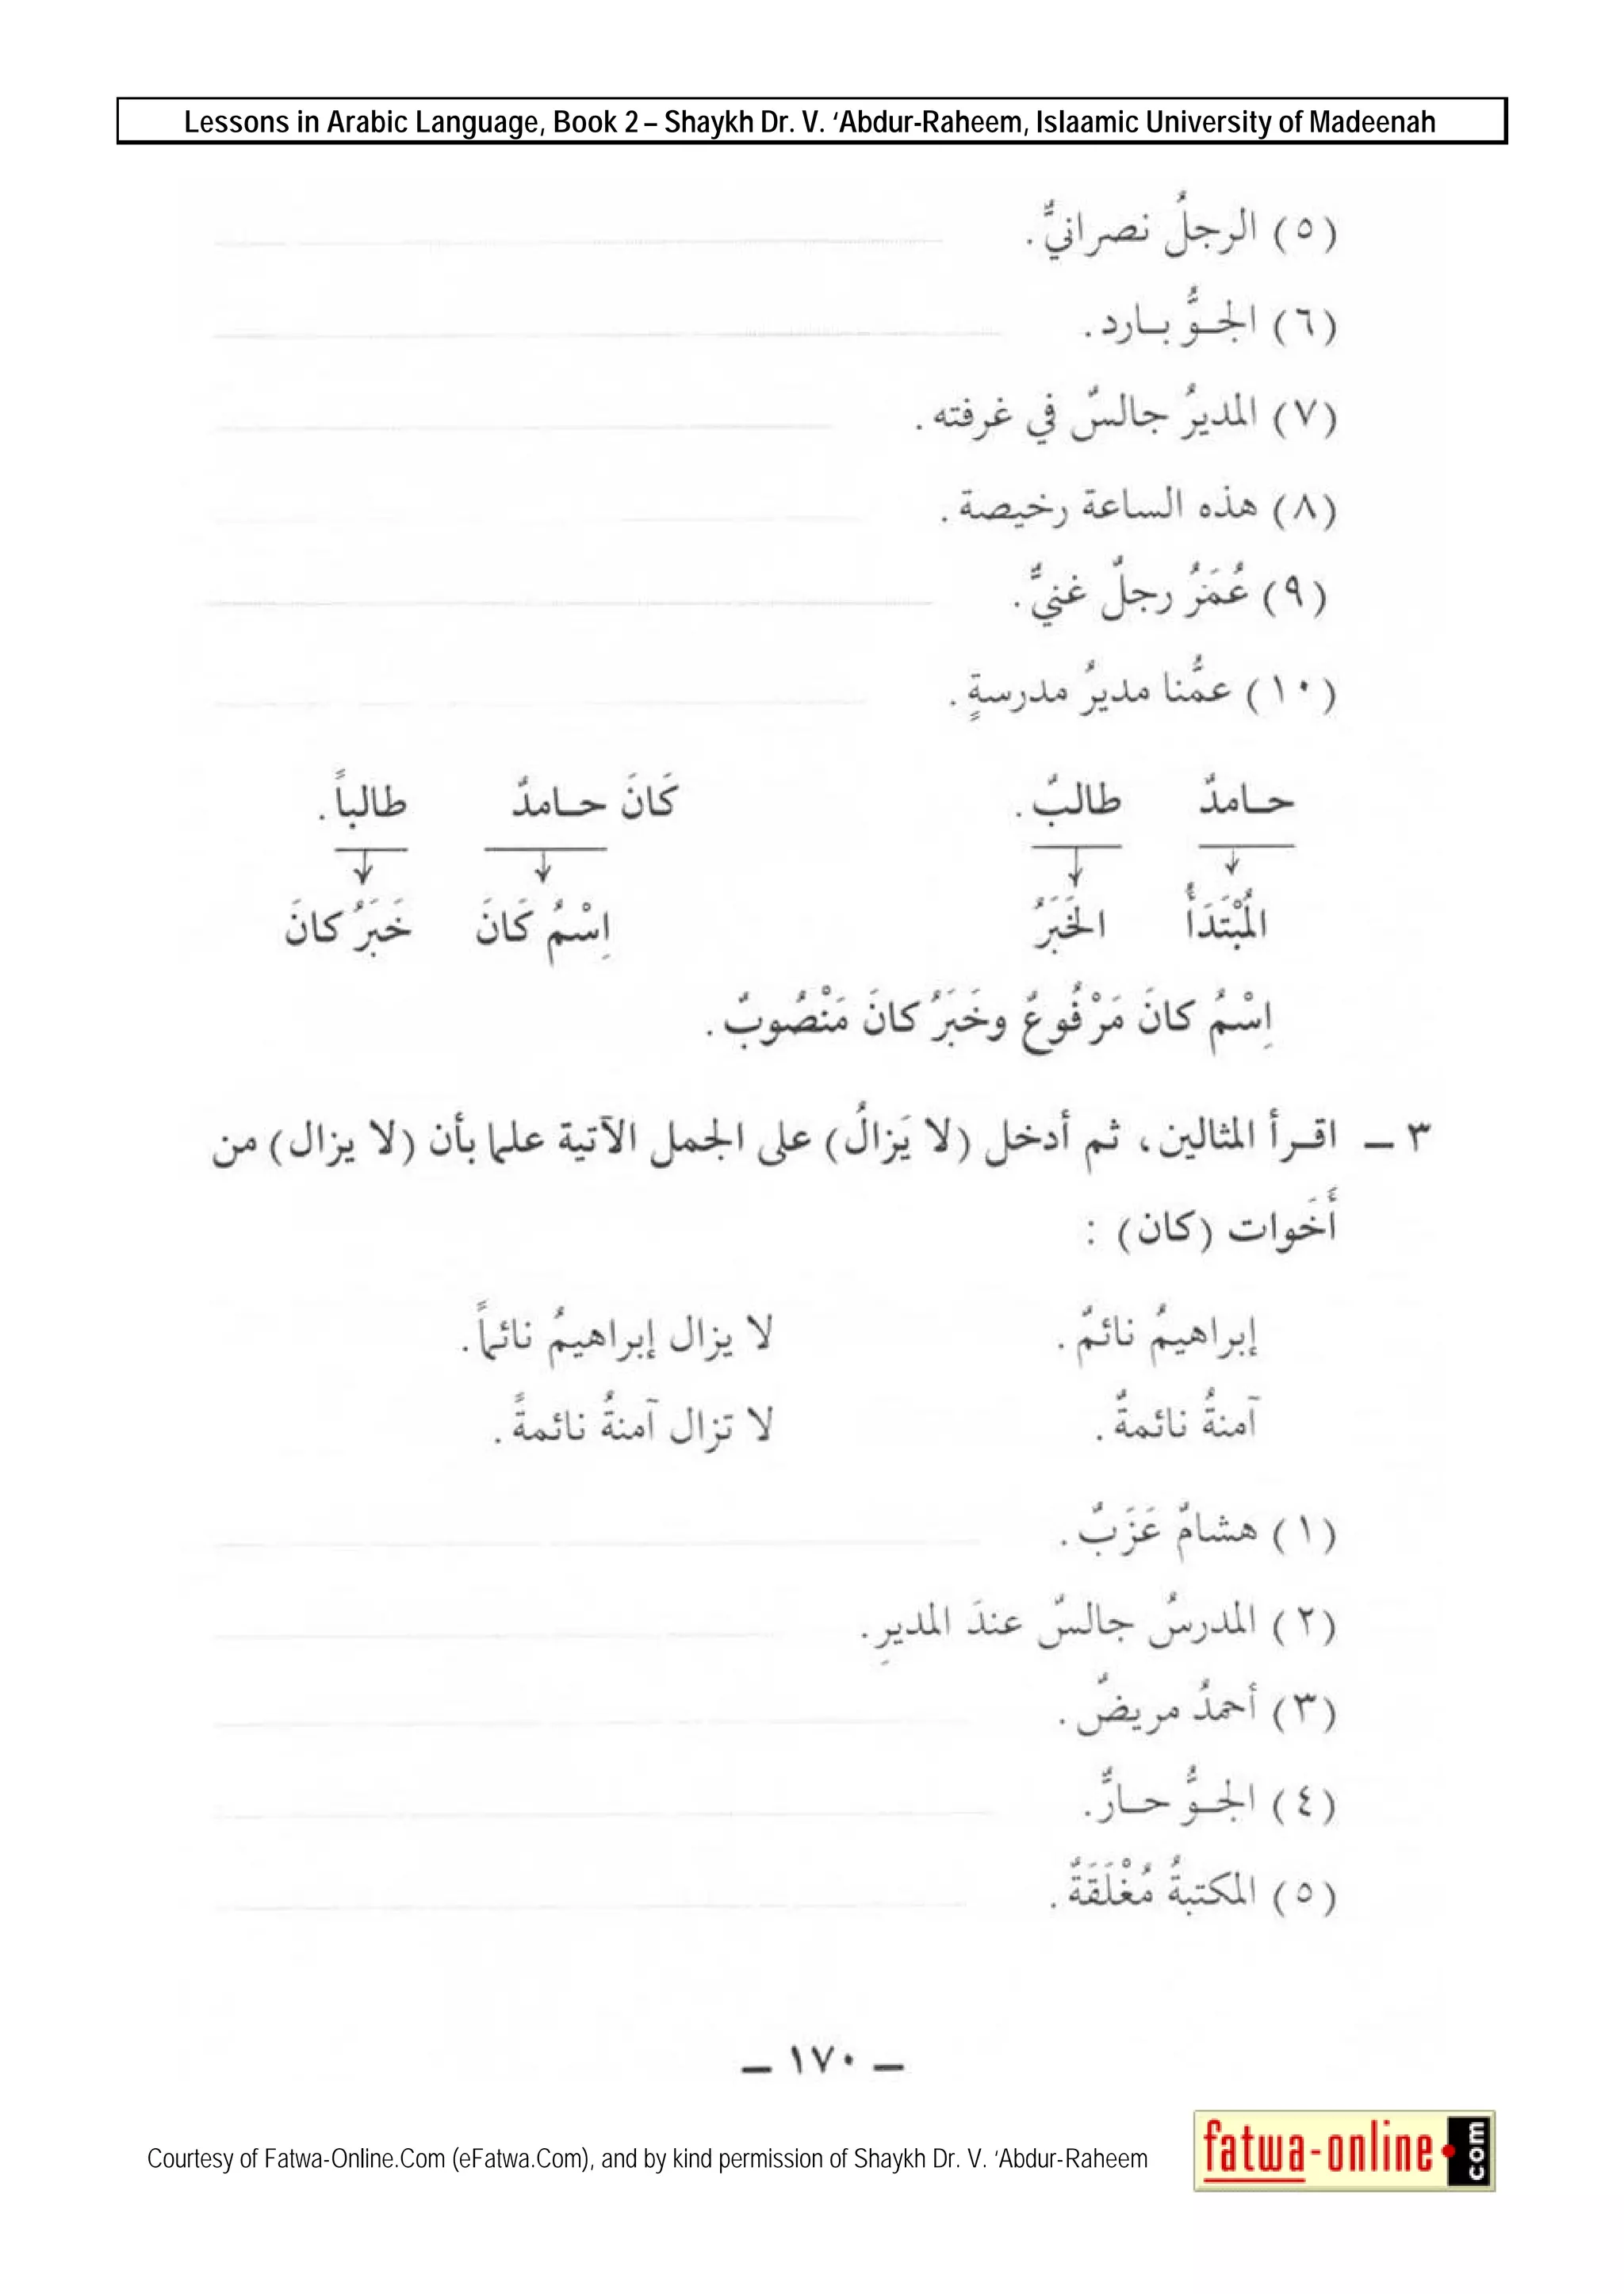 Lessons in Arabic Language, Book 2 – Shaykh Dr. V. ‘Abdur-Raheem, Islaamic University of Madeenah
(٥) الرجلُ نصرانيٌّ.
(٦) الجــوُّ بــارد.
(٧) المديرُ جالسٌ في غرفته.
(٨) هذه الساعة رخيصة.
(٩) عُمَرُ رجلٌ غنيٌّ.
(١٠) عمُّنا مديرُ مدرسةٍ.
حــامدٌ طالبٌ. كَانَ حــامدٌ طالباً.
المُبْتَدَأُ الخَبَرُ اِسْمُ كَانَ خَبَرُ كانَ
اِسْمُ كانَ مَرْفُوعٌ وخَبَرُ كانَ مَنْصُوبٌ.
٣ ــ اقــرأ المثالين، ثم أدخل (لا يَزالُ) على الجمل الآتية علما بأن (لا يزال) من
أَخَوات (كان) :
إبراهيمُ نائمٌ. لا يزال إبراهيمُ نائماً.
آمنةُ نائمةٌ. لا تزال آمنةُ نائمةً.
(١) هشامٌ عَزَبٌ.
(٢) المدرسُ جالسٌ عندَ المديرِ.
(٣) أحمدُ مريضٌ.
(٤) الجــوُّ حــارٌّ.
(٥) المكتبةُ مُغْلَقَةٌ.
ــ ١٧٠ ــ
Courtesy of Fatwa-Online.Com (eFatwa.Com), and by kind permission of Shaykh Dr. V. ‘Abdur-Raheem
fatwa-online•com